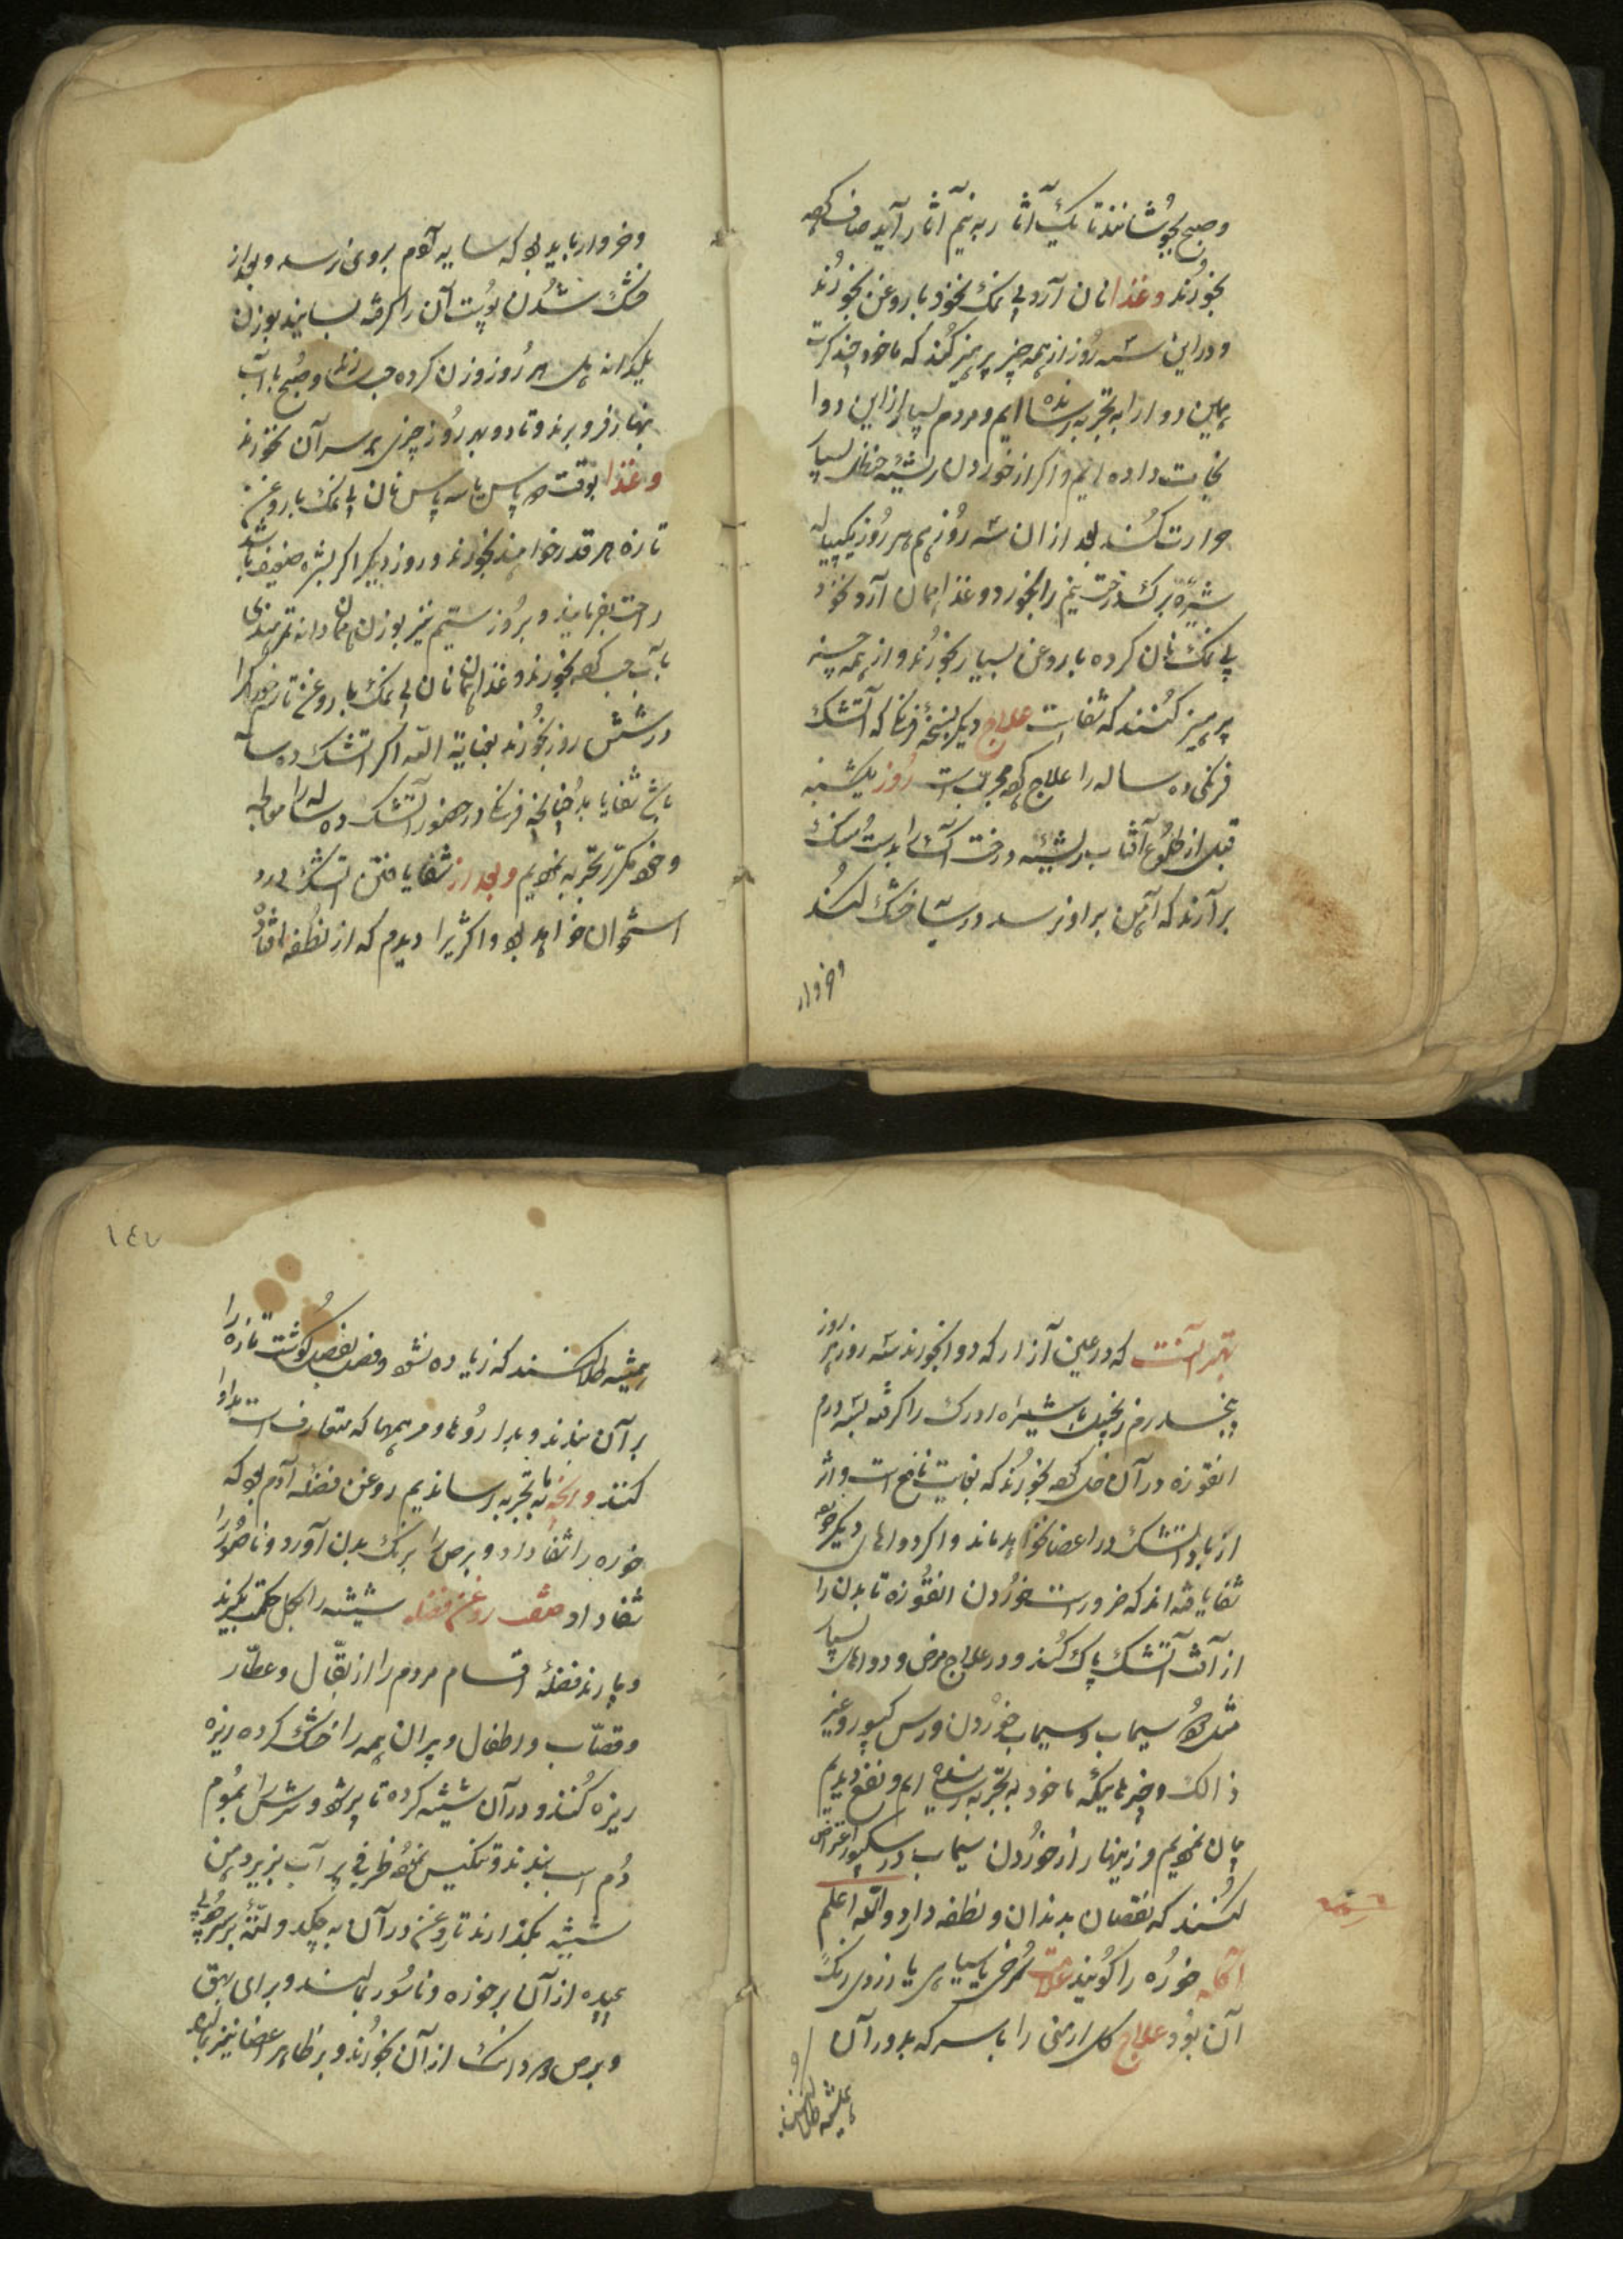 و صبح بجوشانند تا یک آثار به نیم آثار آید صاف کرده
بخورند و غذا نان آرد بی نمک نخود با روغن بخورند
و در این سه روز از همه چیز پرهیز کنند که ما خود چند کرت
همین دوا را به تجربه رسانده ایم و مردم بسیار از این دوا
نجات داده ایم و اگر از خوردن ریشه حنظل بسیار
حرارت کند بعد از ان سه روز هم هر روز یک پیاله
شیره برگ درخت نیم را بخورد و غذا همان آرد نخود
بی نمک نان کرده با روغن بسیار بخورند و از همه چیز
پرهیز کنند که شفاست علاج دیگر نسخه فرنگ که آتشک
فرنگی ده ساله را علاج کند مجرب است روز یکشنبه
قبل از طلوع آفتاب ریشه درخت آک را بدست سنگ
برآرند که آهن بر او نرسد در سایه خشک کنند
و خروار
و خبردار باید بود که سایه آدم بر وی نرسد و بعد از
خشک شدن پوست آن را گرفته بسایند بوزن
یکدانه هر روز وزن کرده حب سازند و صبح با آب
نهار فرو برند و تا دو پهر روز چیزی بر سر آن نخورند
و غذا بوقت دو پاس یا سه پاس نان بی نمک با روغن
تازه هر قدر خواهند بخورند و روز دیگر اگر بشره ضعیف باشد
راحت بفرمایند و بروز سیم نیز بوزن همان دانه تمر هندی
بآب حب کرده بخورند و غذا همان نان بی نمک با روغن تازه
در شش روز بخورند بعنایة الله اگر آتشک ده ساله
باشد شفا یابد چنانچه فرنگ در حضور آتشک ده ساله را معالجه
و خود مکرر تجربه نمودیم و بعد از شفا یافتن آتشک درد
استخوان خواهد بود و اکثر را دیدم که از نطفه افتاد
بهتر آنست که در عین آزار که دوا بخورند سه روز هر روز
پنجدرم زنجبیل یا شیره ادرک را گرفته سه درم
انقوزه در آن حل کرده بخورند که بغایت نافع است و اثر
از باد آتشک در اعضا نخواهد ماند و اگر دواهای دیگر خورده
شفا یافته اند که ضرور است خوردن انقوزه تا بدن را
از آثر آتشک پاک کند و در علاج مرض و دواهای بسیار
مثل سیماب و سیماب خوردن و رس کپور و غیر
ذالک و چیزهاییکه ما خود به تجربه رسانیده ایم و نفع دیدیم
بیان نمودیم و زینهار از خوردن سیماب و رسکپور اعتراض
کنند که نقصان بدندان و نطفه دارد والله اعلم
آکله خوره را گویند علامت سرخی یا سیاهی یا زردی رنگ
آن بود علاج گل ارمنی را با سرکه بدور آن
همیشه طلا کنند
١٤٧
همیشه طلا کنند که زیاده نشود و قصب قصب گوشت تازه را
بر آن بندند و بداروها و مرهمها که متعارف است مداوا
کنند و آنچه ما به تجربه رساندیم روغن فضله آدم بود که
خوره را شفا داد و برص را برنگ بدن آورد و ناصور را
شفا داد صفت روغن فضله شیشه را بگل حکمت بگیرند
و بیارند فضله اقسام مردم را از بقال و عطار
و قصاب و اطفال و پیران همه را خشک کرده ریزه
ریزه کنند و در آن شیشه کرده تا پر شود و سرش را بموم
دم اسب بندند و تنکیس نموده ظرفی پر آب بزیر دهن
شیشه بگذارند تا روغن در آن به چکد و لته بر سر چوبی
پیچیده از آن بر خوره و ناسور بمالند و برای بهق
و برص هر دو از آن بخورند و بر ظاهر اعضا نیز بمالند